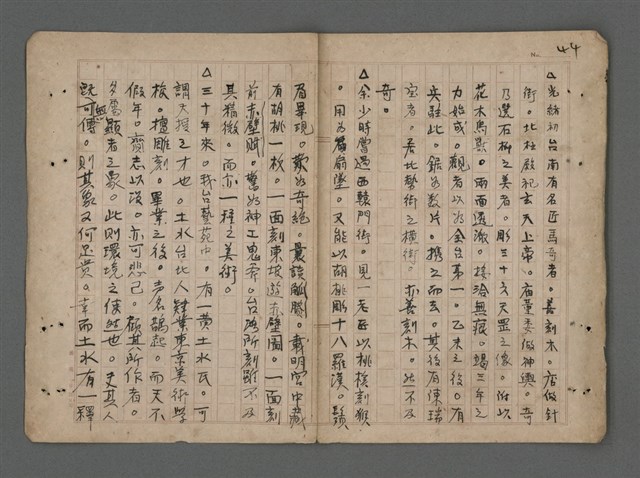 44
△光緒初台南有名匠馬奇者。善刻木。店做針
街。北杜殿祀玄天上帝。廟董委做神輿。奇
乃選石柳之美者。彫三十六天罡之像。附以
花木鳥獸。兩面透澈。接洽無痕。竭三年之
力始成。觀者以為全台第一。乙未之後。有
兵駐此。鋸為數片。攜之而去。其後有陳瑞
宝者。居比藝術之橫街。亦善刻木。然不及
奇。
△余少時嘗過西轅門街。見一老匠以桃核刻猴
。用為扇墜。又能以胡桃彫十八羅漢。鬚
眉畢現。歎為奇絕。曩談觚賸。載明宮中藏
有胡桃一枚。一面刻東坡遊赤壁圖。一面刻
前赤壁賦。驚為神工鬼斧。台匠所刻雖不及
其精微。而亦一種之美術。
△三十年來。我台藝苑中。有一黃土水氏。可
謂天授之才也。土水台北人肄業東京美術學
校。櫃雕刻。畢業之後。声名鵲起。而天不
假年。齎志以沒。亦可悲已。顧其所作者。
多屬顯者之象。此則環境之使然也。夫其人
既無可傳。則其象又何足貴。幸而土水有一釋